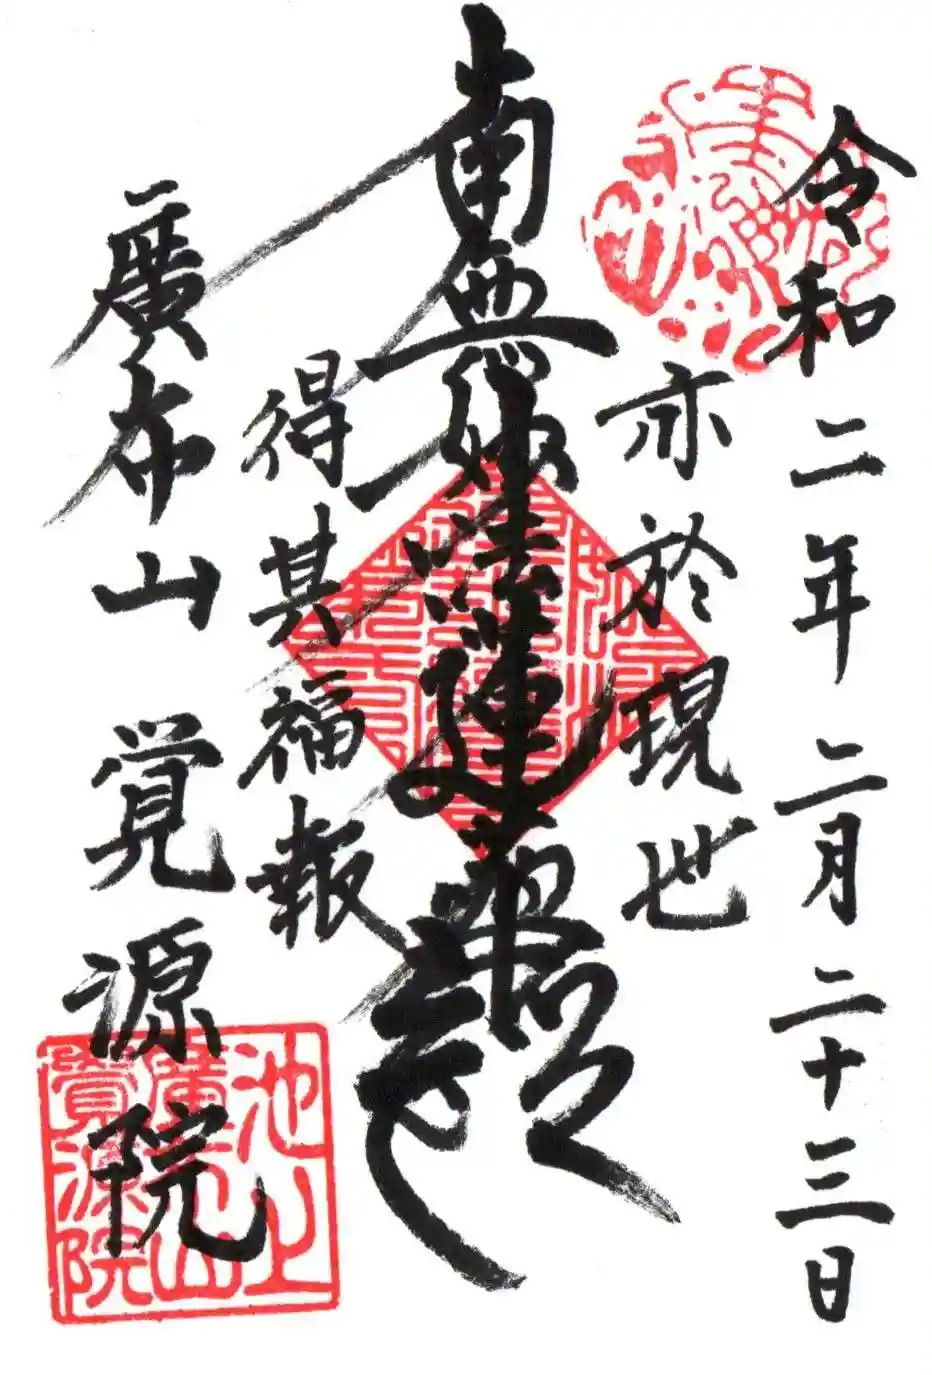 令和二年二月二十三日
亦於現世
南無妙法蓮華経
得其福報
廣布山 覚源院
池上
廣布山
覚源院